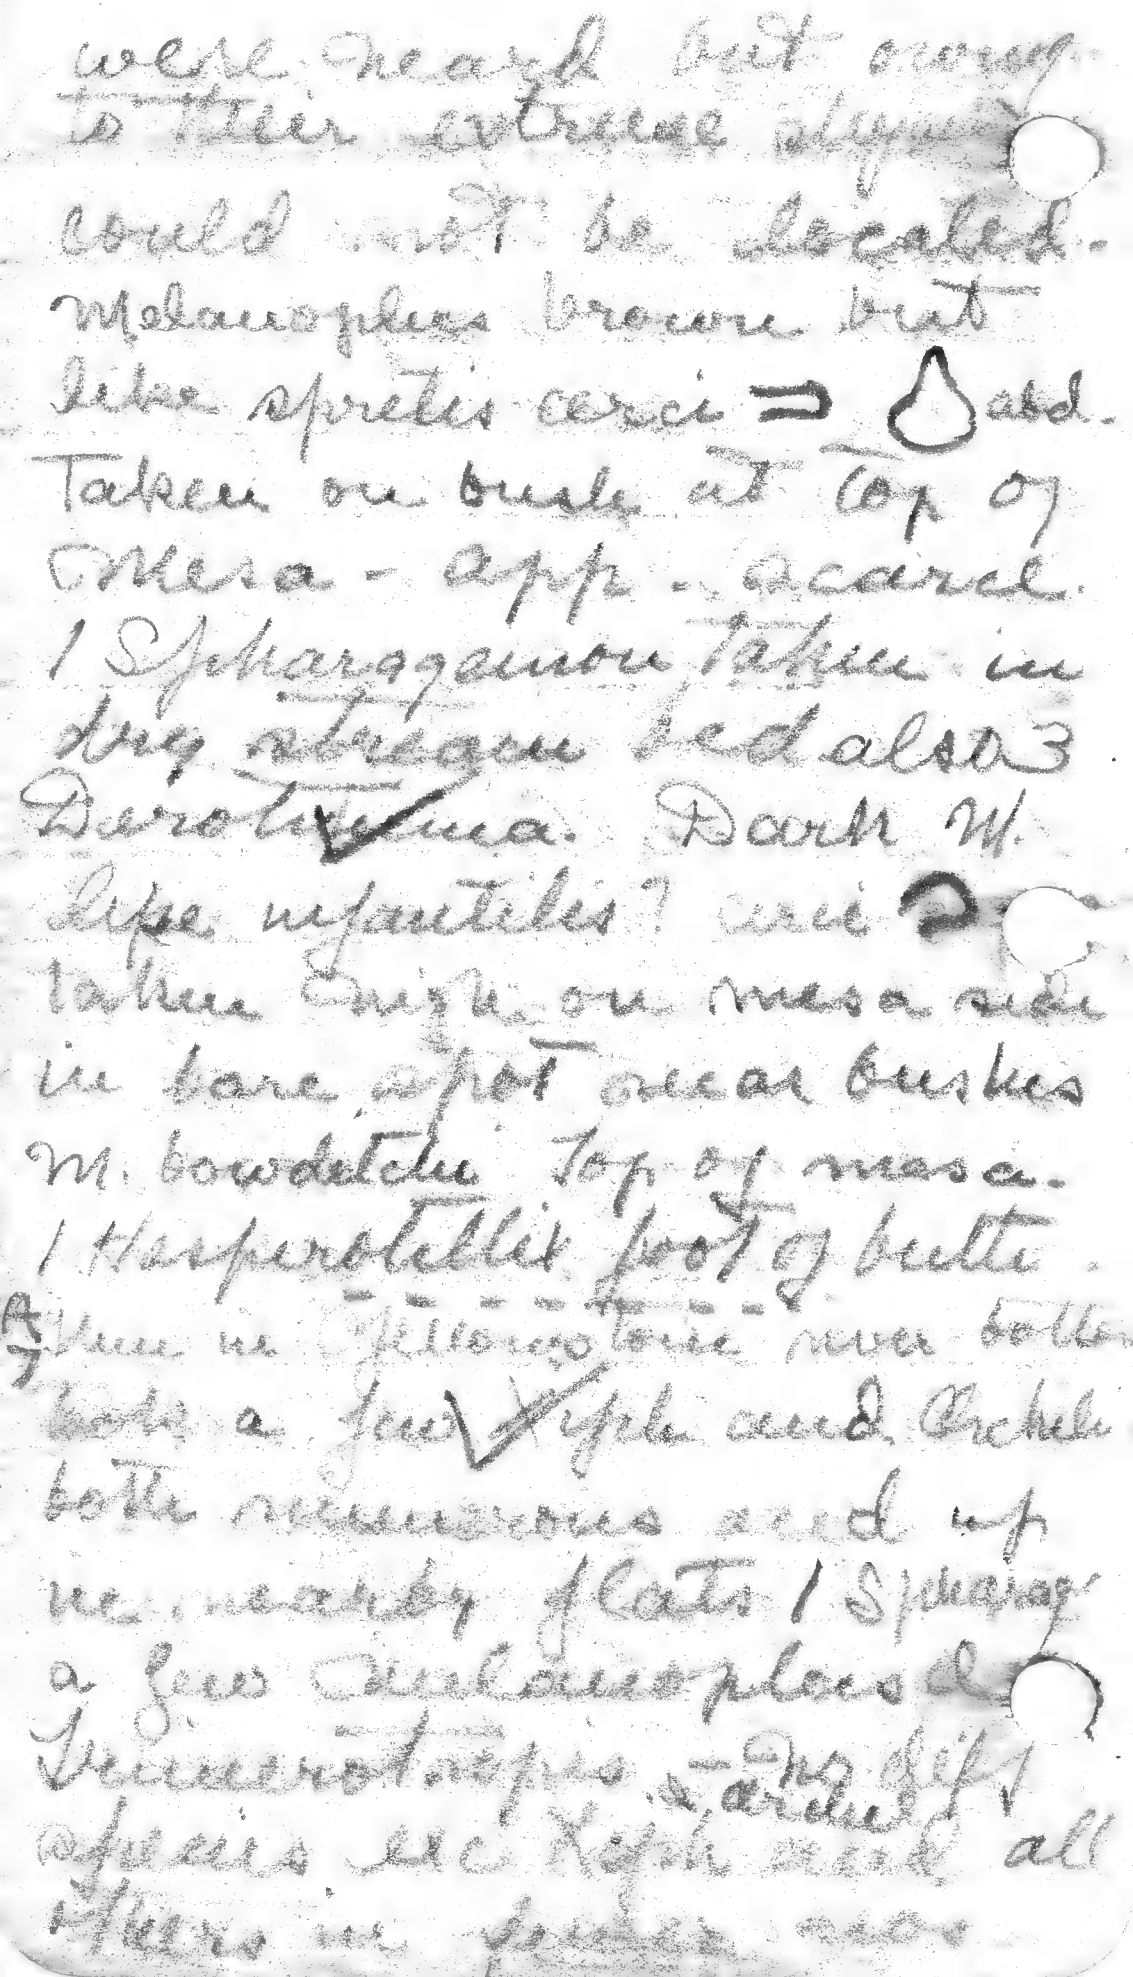 were heard but owing
to their extreme shyness
could not be located.
Melanoplus brown but
like spretis cerci abd.
Taken on bush at top of
Mesa - app. scarce.
1 Spharagamon taken in
dry stream bed also 3
Derotmema. Dark M.
like infantilis? cerci
taken high on mesa side
in bare spot near bushes
M. bowditchi top of mesa.
1 Hesperotettix foot of butte.
in Yellowstone river bottom
both a few Xiph and Orchel
both numerous and up
in nearby flats 1 Spharag
a few Melanoplus
Trimerotropis - No diff
species exc. Xiph & orchel and all
in